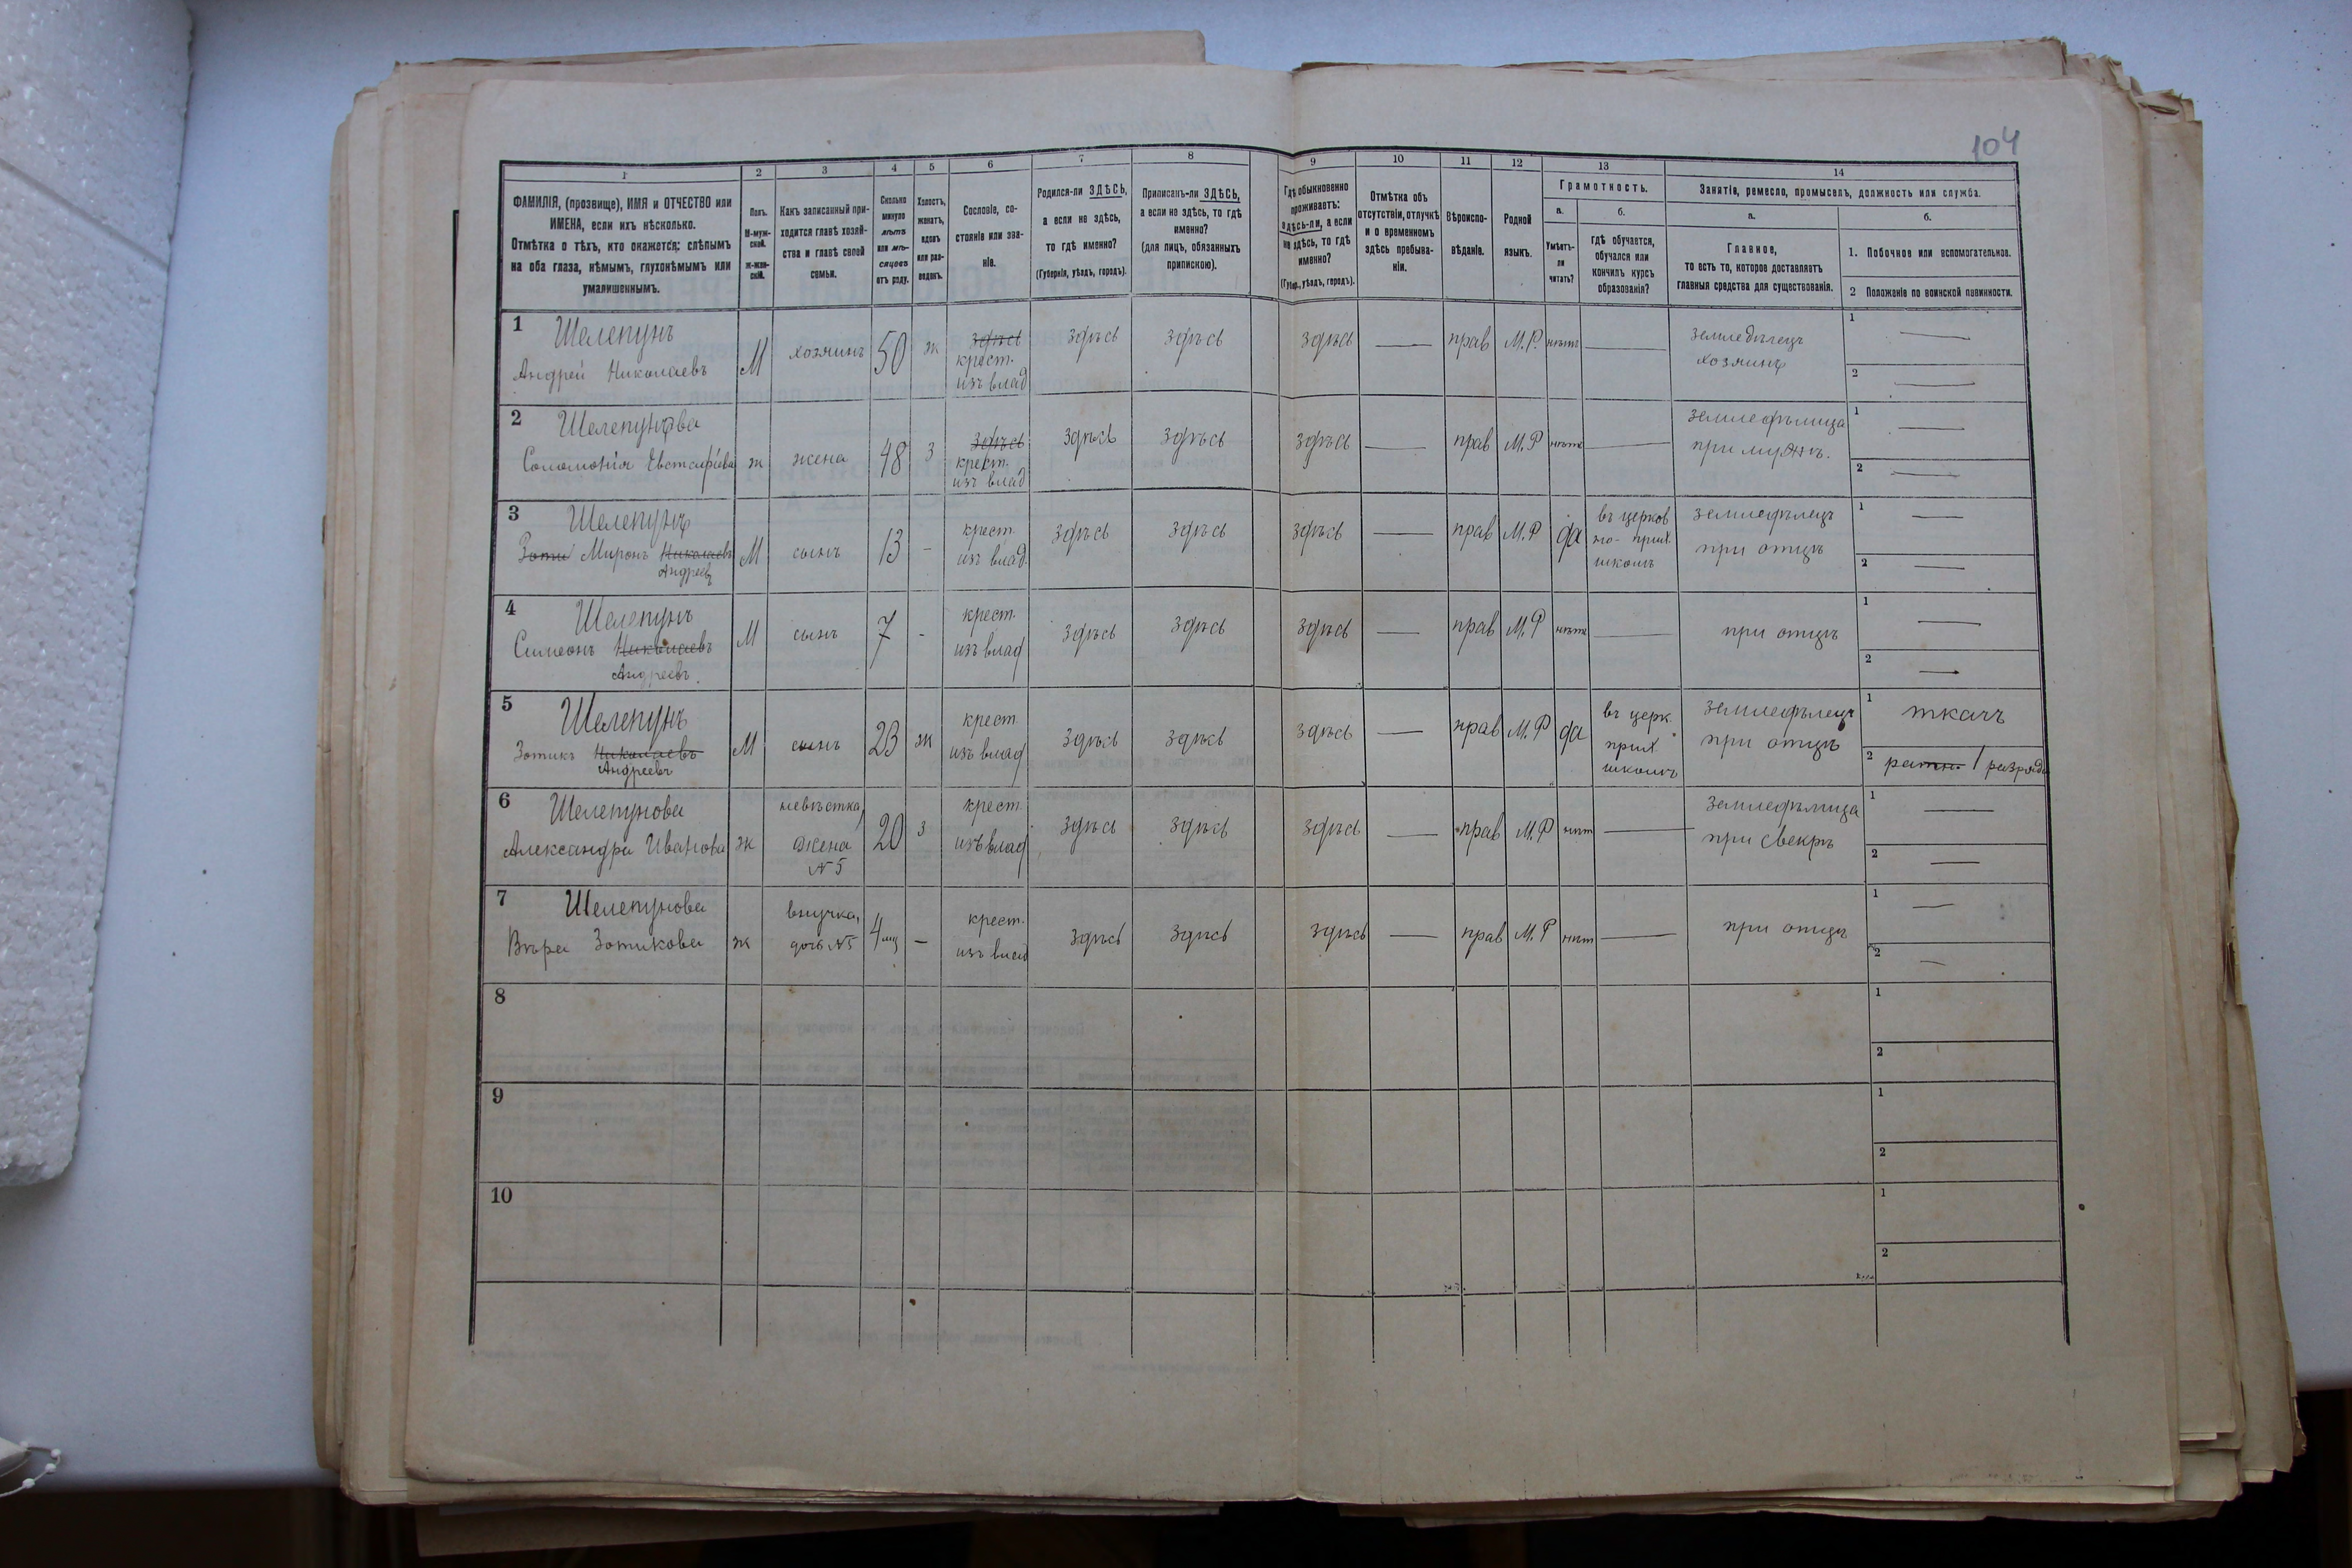 104
1 2 3 4 5 6 7 8 9 10 11 12 13 14
ФАМИЛІЯ, (прозвище), ИМЯ и ОТЧЕСТВО или
ИМЕНА, если ихъ нѣсколько.
Отмѣтка о тѣхъ, кто окажется: слѣпымъ
на оба глаза, нѣмымъ, глухонѣмымъ или
умалишеннымъ.
Полъ.
М-муж-
ской.
ж-жен-
скій.
Какъ записанный при-
ходится главѣ хозяй-
ства и главѣ своей
семьи.
Сколько
минуло
лѣтъ
или мѣ-
сяцевъ
отъ роду.
Холостъ,
женатъ,
вдовъ
или раз-
веденъ.
Сословіе, со-
стояніе или зва-
ніе.
Родился-ли ЗДѢСЬ,
а если не здѣсь,
то гдѣ именно?
(Губернія, уѣздъ, городъ).
Приписанъ-ли ЗДѢСЬ,
а если не здѣсь, то гдѣ
именно?
(для лицъ, обязанныхъ
припискою).
Гдѣ обыкновенно
проживаетъ:
здѣсь-ли, а если
не здѣсь, то гдѣ
именно?
(Губер., уѣздъ, городъ).
Отмѣтка объ
отсутствіи, отлучкѣ
и о временномъ
здѣсь пребыва-
ніи.
Вѣроиспо-
вѣданіе.
Родной
языкъ.
Грамотность.
а.
Умѣетъ-
ли
читать?
б.
гдѣ обучается,
обучался или
кончилъ курсъ
образованія?
Занятіе, ремесло, промыселъ, должность или служба.
а.
Главное,
то есть то, которое доставляетъ
главныя средства для существованія.
б.
1. Побочное или вспомогательное.
2 Положеніе по воинской повинности.
1 Шелепунъ
Андрей Николаевъ М хозяинъ 50 ж здѣсь
крест.
изъ влад здѣсь здѣсь здѣсь — прав М.Р. нѣтъ — земледѣлецъ
хозяинъ 1 —
2 —
2 Шелепунова
Соломонія Евстафіева ж жена 48 з здѣсь
крест.
изъ влад здѣсь здѣсь здѣсь — прав М.Р нѣтъ — земледѣлица
при мужѣ. 1 —
2 —
3 Шелепунъ
Зоти Миронъ Николаевъ
Андреевъ М сынъ 13 - крест.
изъ влад. здѣсь здѣсь здѣсь — прав М.Р да въ церков
но-прих.
школѣ земледѣлецъ
при отцѣ 1 —
2 —
4 Шелепунъ
Симеонъ Николаевъ
Андреевъ. М сынъ 7 - крест.
изъ влад здѣсь здѣсь здѣсь — прав М.Р нѣтъ — при отцѣ 1 —
2 —
5 Шелепунъ
Зотикъ Николаевъ
Андреевъ М сынъ 23 ж крест.
изъ влад здѣсь здѣсь здѣсь — прав М.Р да въ церк.
прих.
школѣ земледѣлецъ
при отцѣ 1 ткачъ
2 ратн. 1 разряда
6 Шелепунова
Александра Иванова ж невѣстка,
жена
№5 20 з крест.
изъ влад здѣсь здѣсь здѣсь — прав М.Р нѣт — земледѣлица
при свекрѣ 1 —
2 —
7 Шелепунова
Вѣра Зотикова ж внучка,
дочь №5 4 мц — крест.
изъ влад здѣсь здѣсь здѣсь — прав М.Р нѣт — при отцѣ 1 —
2 —
8 1
2
9 1
2
10 1
2